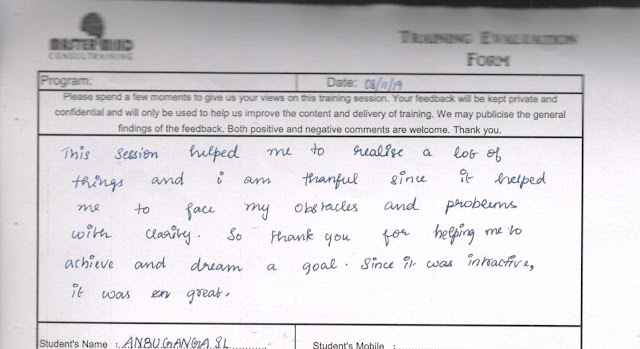 MASTER MIND
CONSULTRAINING
TRAINING EVALUATION
FORM
Program:
Date: 08/11/19
Please spend a few moments to give us your views on this training session. Your feedback will be kept private and
confidential and will only be used to help us improve the content and delivery of training. We may publicise the general
findings of the feedback. Both positive and negative comments are welcome. Thank you.
This session helped me to realise a lot of
things and i am thanful since it helped
me to face my obstacles and problems
with clarity. So thank you for helping me to
achieve and dream a goal. Since it was intractive,
it was great.
Student's Name : ANBU GANGA S.L
Student's Mobile :